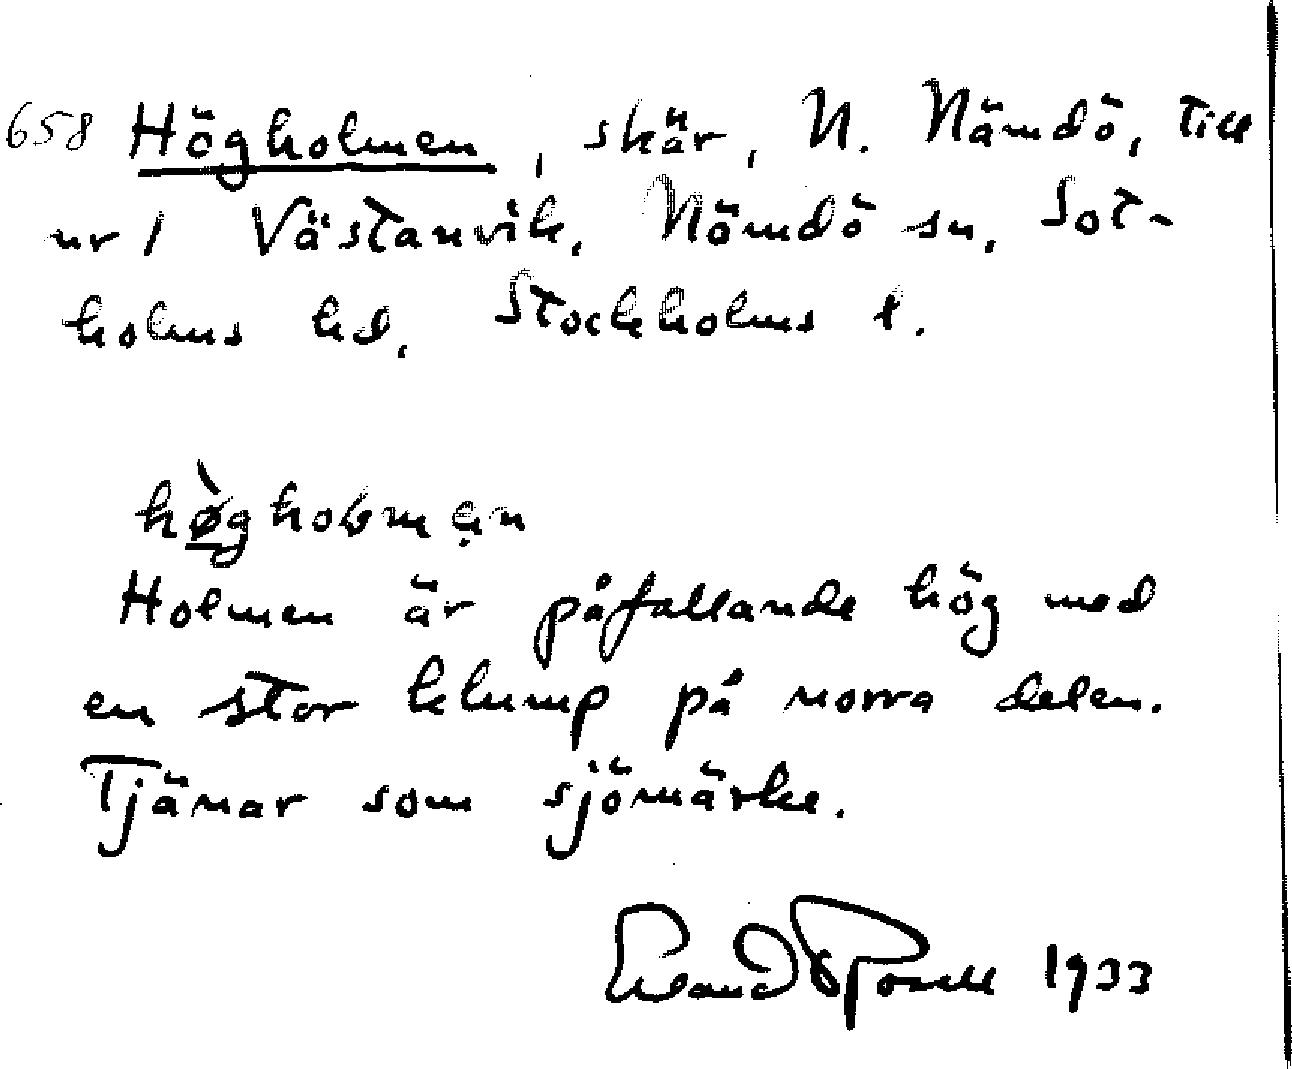 658 Högholmen, skär, N. Nämdö, till
nr 1 Västanvik, Nämdö sn, Sot-
holms hd, Stockholms l.
Holmen är påfallande hög med
en stor klump på norra delen.
Tjänar som sjömärke.
1933